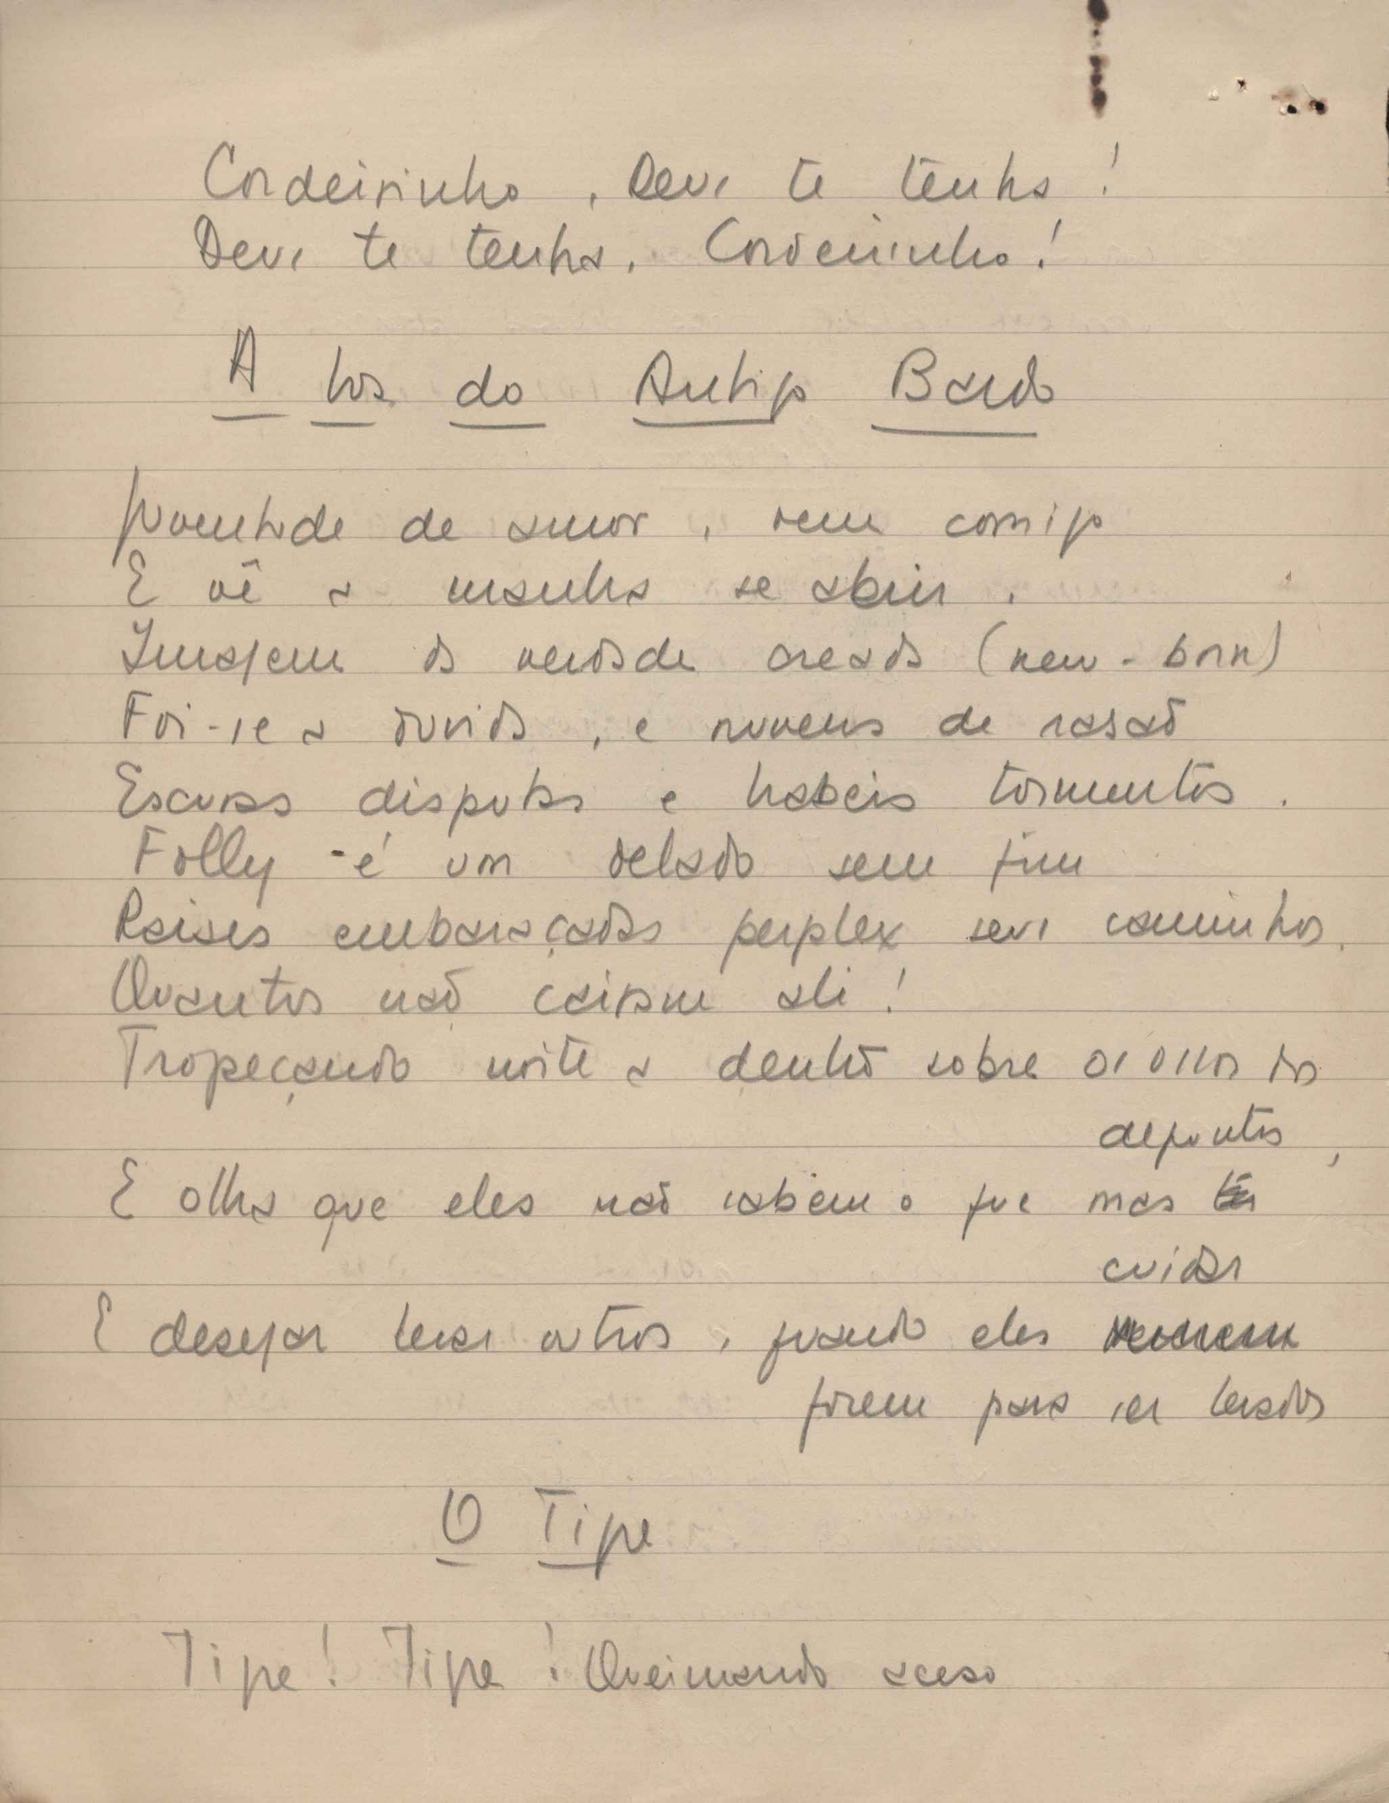 Cordeirinho, Deus te tenha!
Deus te tenha, Cordeirinho!
A Vos do Antigo Bardo
Juventude de amor, vem comigo
E vê a manhã se abrir.
Imagem da verdade creada (new-born)
Foi-se a duvida, e nuvens de rasão
Escuras disputas e habeis tormentos.
Folly - é um delado sem fim
Raises embaraçadas perplex seus caminhos.
Quantos não cairam ali!
Tropeçando noite a dentro sobre os ossos dos
defuntos,
E olha que eles não sabem o que mas
cuidar
E desejar levar outros, quando eles
forem para ser levados
O Tigre
Tigre! Tigre! Queimando aceso